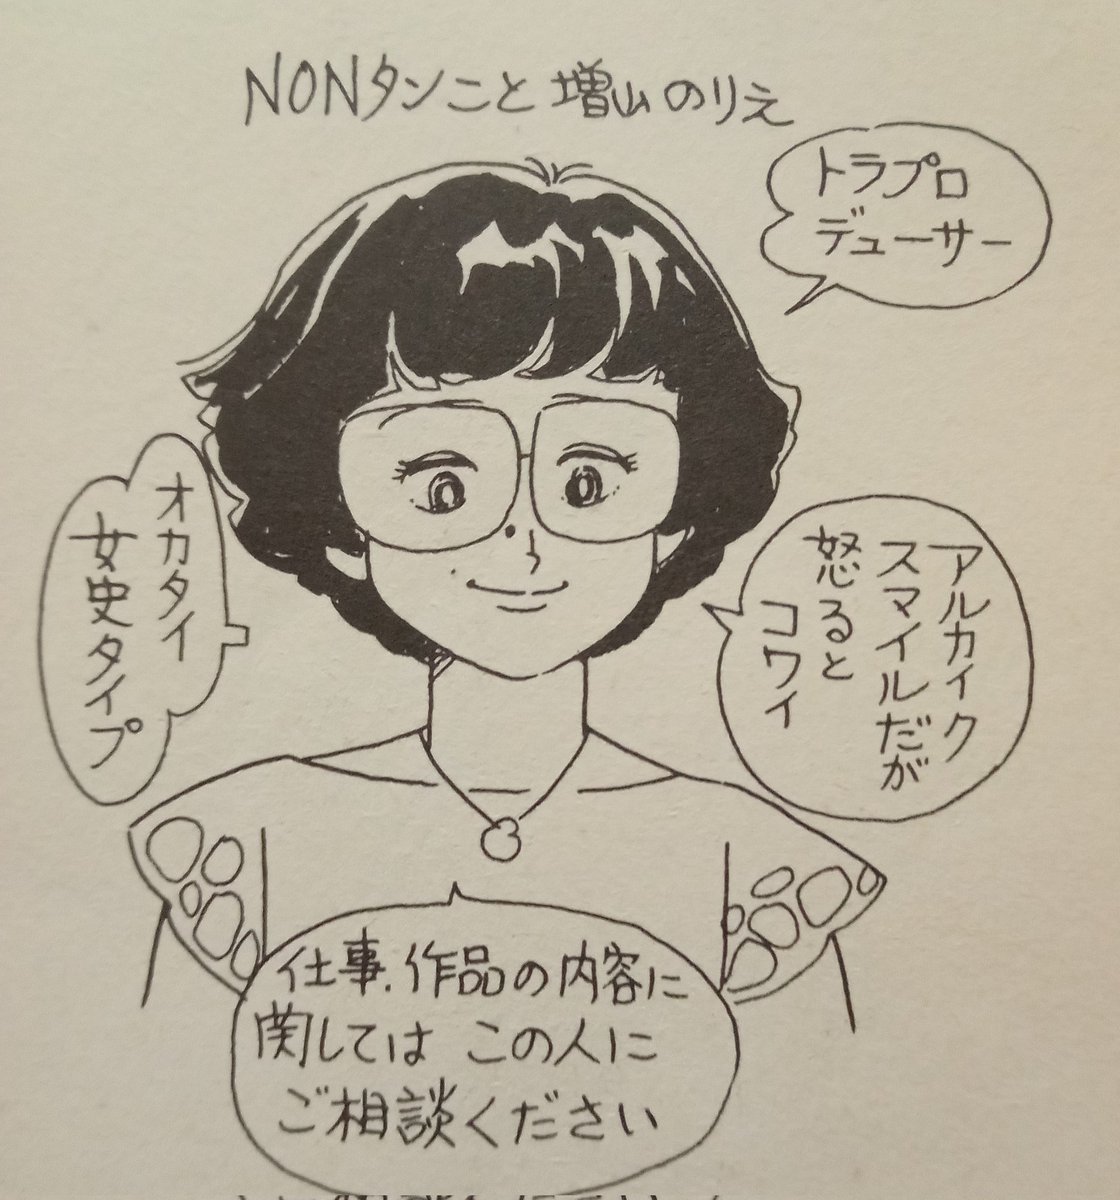 NONタンこと増山のりえ
トラプロ
デューサー
オカタイ
女史タイプ
アルカイク
スマイルだが
怒ると
コワイ
仕事.作品の内容に
関しては この人に
ご相談ください